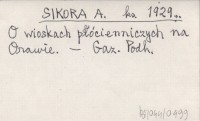 SIKORA A. ka 1929.
O wioskach płócienniczych na
Orawie. – Gaz. Podh.